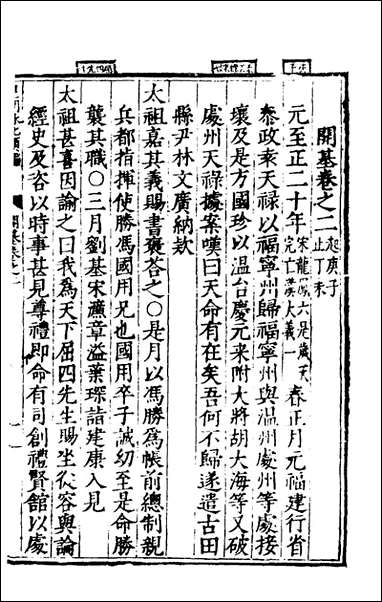 開基卷之二 起庚子止丁未
元至正二十年 宋龍鳳六是歲天完亡漢大義一 春正月元福建行省
叅政袁天祿以福寧州歸福寧州與温州處州等處接
壤及是方國珍以温台慶元来附大將胡大海等又破
處州天祿據案嘆曰天命有在矣吾何不歸遂遣古田
縣尹林文廣納欵
太祖嘉其義賜書褒荅之〇是月以馮勝為帳前總制親
兵都指揮使勝馮國用兄也國用卒子誠幼至是命勝
襲其職〇三月劉基宋濂章溢葉琛詣建康入見
太祖甚喜因諭之曰我為天下屈四先生賜坐從容與論
經史及咨以時事甚見尊禮即命有司創禮賢館以處
開基卷之二